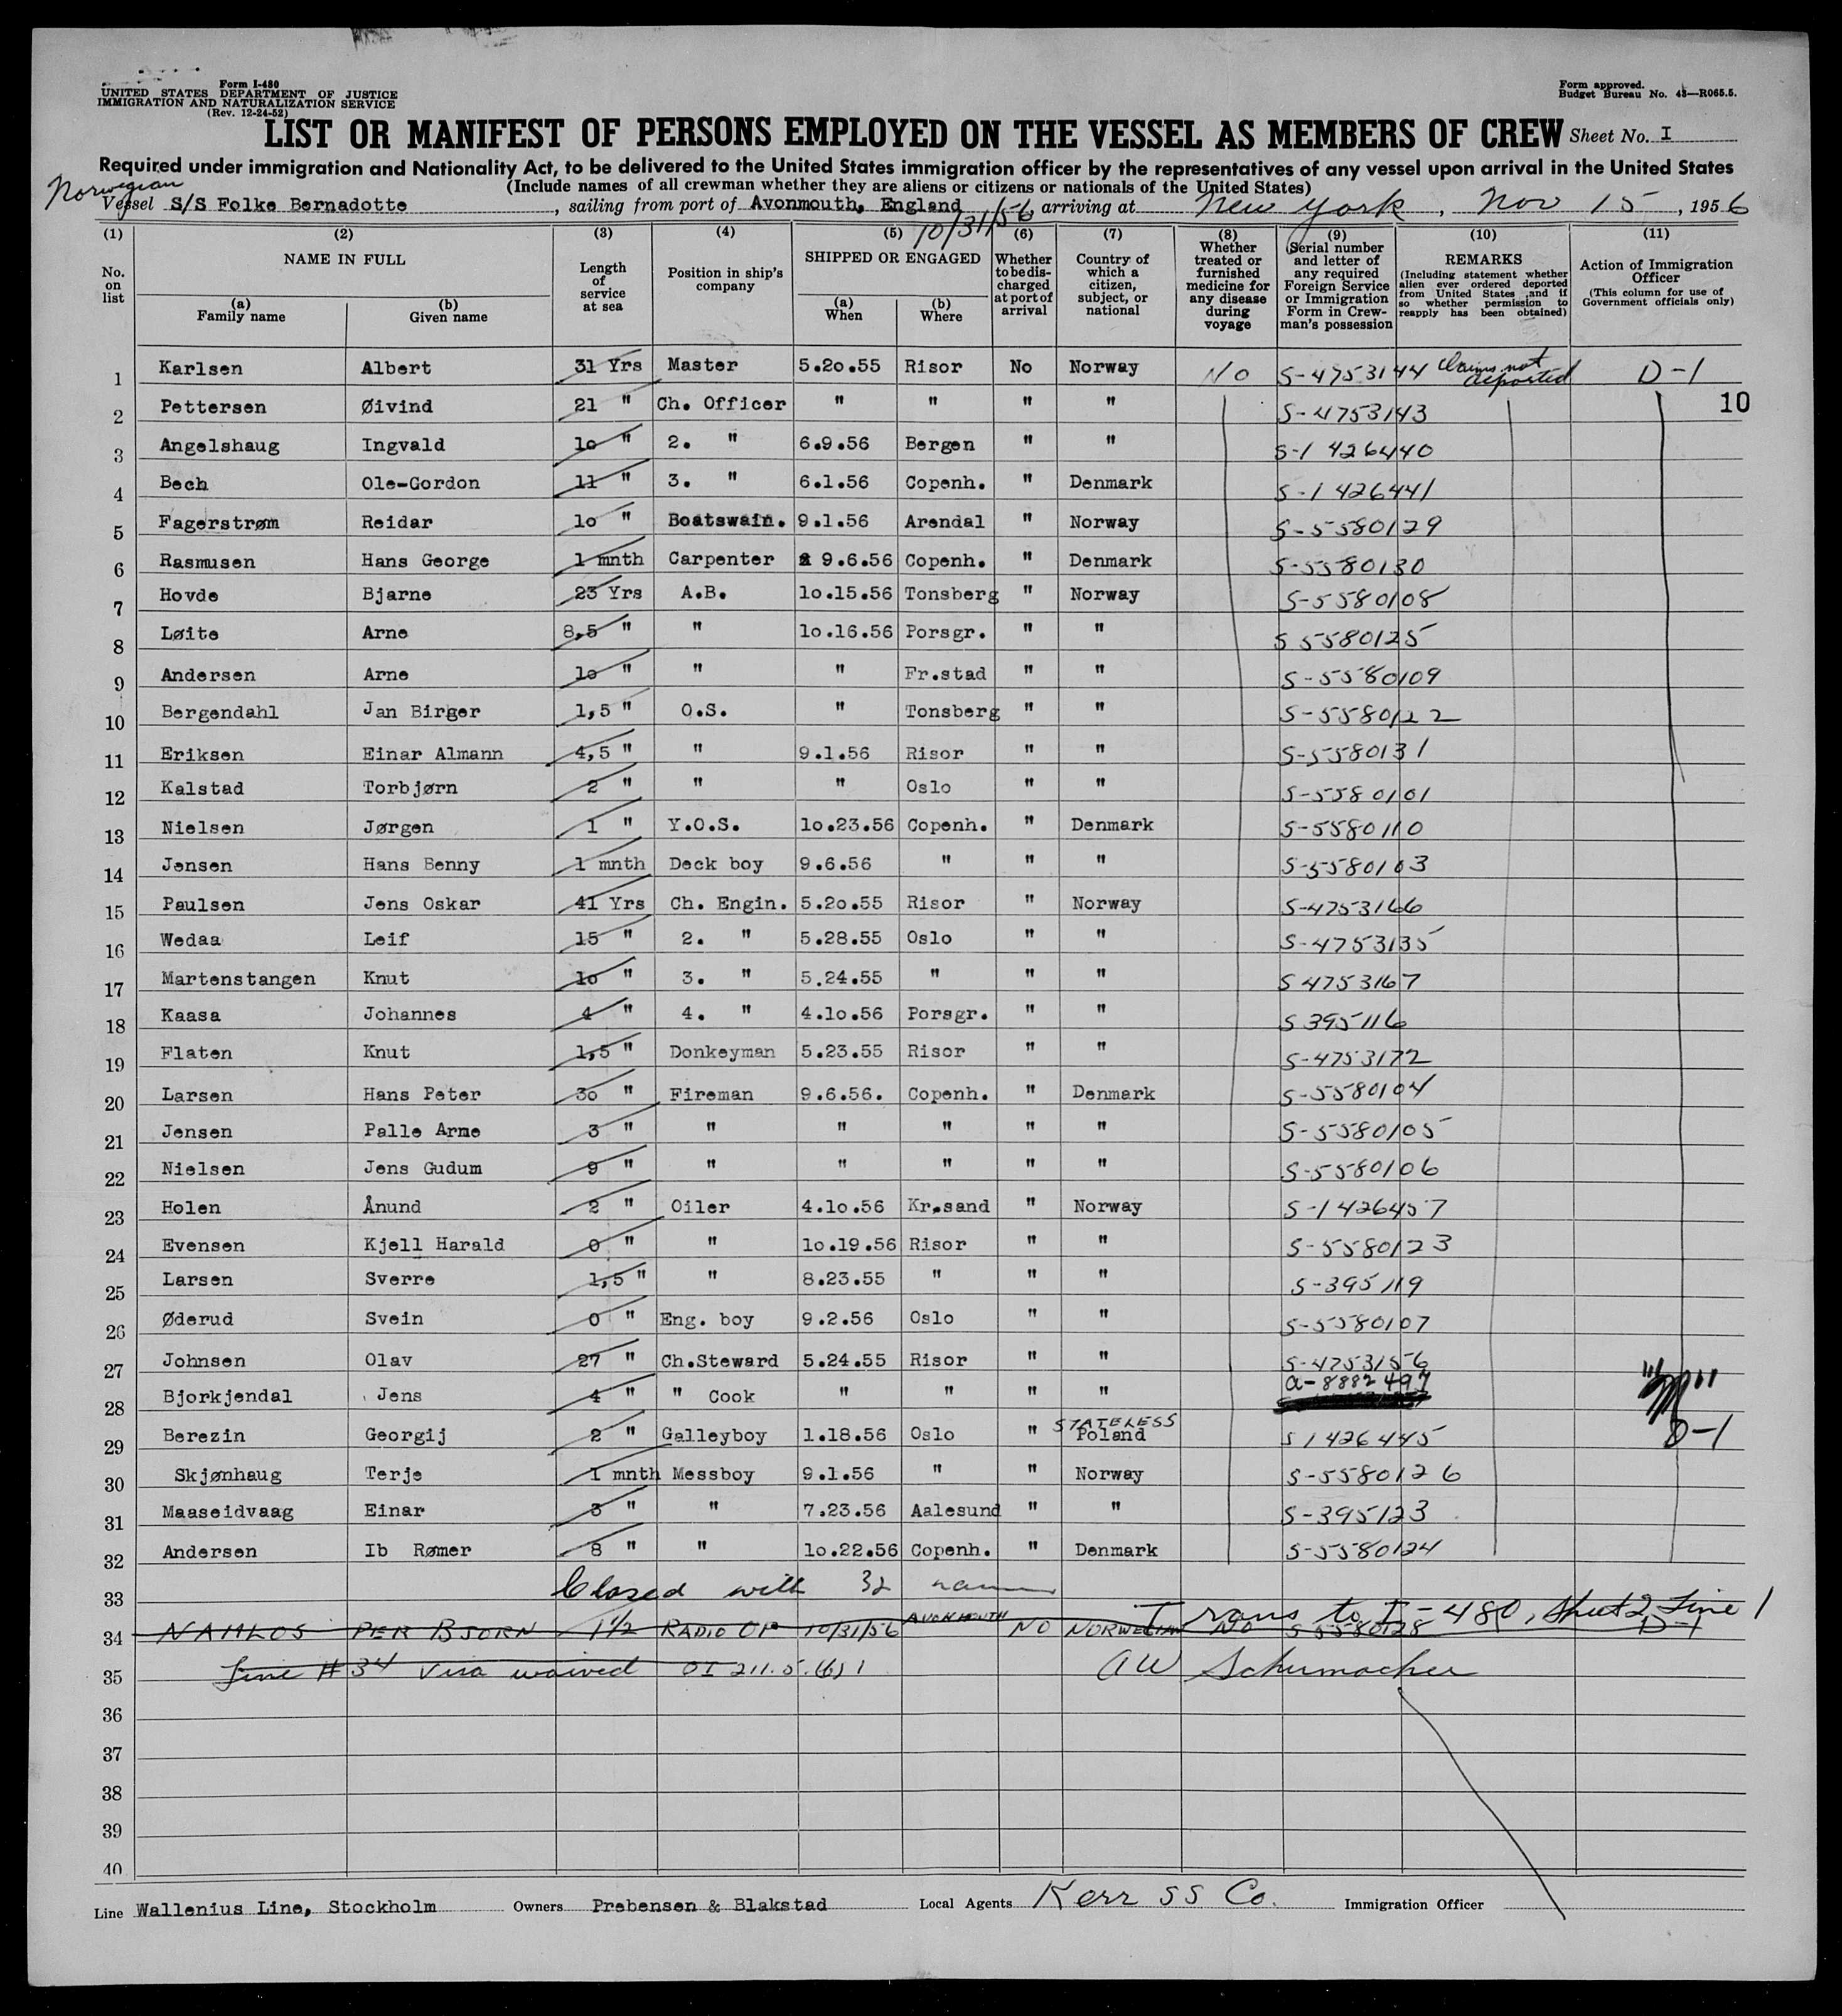 Form I-480
UNITED STATES DEPARTMENT OF JUSTICE
IMMIGRATION AND NATURALIZATION SERVICE
(Rev. 12-24-52)
Form approved.
Budget Bureau No. 43—R065.5.
LIST OR MANIFEST OF PERSONS EMPLOYED ON THE VESSEL AS MEMBERS OF CREW Sheet No. I
Required under immigration and Nationality Act, to be delivered to the United States immigration officer by the representatives of any vessel upon arrival in the United States
(Include names of all crewman whether they are aliens or citizens or nationals of the United States)
Norwegian
Vessel S/S Folke Bernadotte, sailing from port of Avonmouth, England arriving at New York, Nov 15, 1956
10/31/56
(1) (2) (3) (4) (5) (6) (7) (8) (9) (10) (11)
No. on list
NAME IN FULL
(a) Family name
(b) Given name
Length of service at sea
Position in ship's company
SHIPPED OR ENGAGED
(a) When
(b) Where
Whether to be discharged at port of arrival
Country of which a citizen, subject, or national
Whether treated or furnished medicine for any disease during voyage
Serial number and letter of any required Foreign Service or Immigration Form in Crewman's possession
REMARKS
(Including statement whether alien ever ordered deported from United States and if so whether permission to reapply has been obtained)
Action of Immigration Officer
(This column for use of Government officials only)
1 Karlsen Albert 31 Yrs Master 5.20.55 Risor No Norway No S-4753144 Claims not deported D-1
2 Pettersen Øivind 21 " Ch. Officer " " " " S-4753143 10
3 Angelshaug Ingvald 10 " 2. " 6.9.56 Bergen " " S-1426440
4 Bech Ole-Gordon 11 " 3. " 6.1.56 Copenh. " Denmark S-1426441
5 Fagerstrøm Reidar 10 " Boatswain. 9.1.56 Arendal " Norway S-5580129
6 Rasmusen Hans George 1 mnth Carpenter 9.6.56 Copenh. " Denmark S-5580130
7 Hovde Bjarne 23 Yrs A.B. 10.15.56 Tonsberg " Norway S-5580108
8 Løite Arne 8,5 " " 10.16.56 Porsgr. " " S 5580125
9 Andersen Arne 10 " " " Fr.stad " " S-5580109
10 Bergendahl Jan Birger 1,5 " O.S. " Tonsberg " " S-5580122
11 Eriksen Einar Almann 4,5 " " 9.1.56 Risor " " S-5580131
12 Kalstad Torbjørn 2 " " " Oslo " " S-5580101
13 Nielsen Jørgen 1 " Y.O.S. 10.23.56 Copenh. " Denmark S-5580110
14 Jensen Hans Benny 1 mnth Deck boy 9.6.56 " " " S-5580103
15 Paulsen Jens Oskar 41 Yrs Ch. Engin. 5.20.55 Risor " Norway S-4753166
16 Wedaa Leif 15 " 2. " 5.28.55 Oslo " " S-4753135
17 Martenstangen Knut 10 " 3. " 5.24.55 " " " S 4753167
18 Kaasa Johannes 4 " 4. " 4.10.56 Porsgr. " " S 395116
19 Flaten Knut 1,5 " Donkeyman 5.23.55 Risor " " S-4753172
20 Larsen Hans Peter 30 " Fireman 9.6.56. Copenh. " Denmark S-5580104
21 Jensen Palle Arne 3 " " " " " " S-5580105
22 Nielsen Jens Gudum 9 " " " " " " S-5580106
23 Holen Ånund 2 " Oiler 4.10.56 Kr.sand " Norway S-1426457
24 Evensen Kjell Harald 0 " " 10.19.56 Risor " " S-5580123
25 Larsen Sverre 1,5 " " 8.23.55 " " " S-395119
26 Øderud Svein 0 " Eng. boy 9.2.56 Oslo " " S-5580107
27 Johnsen Olav 27 " Ch.Steward 5.24.55 Risor " " S-4753156
28 Bjorkjendal Jens 4 " " Cook " " " " a-8882497 "M"
29 Berezin Georgij 2 " Galleyboy 1.18.56 Oslo " STATELESS Poland S1426445 D-1
30 Skjønhaug Terje 1 mnth Messboy 9.1.56 " " Norway S-5580126
31 Maaseidvaag Einar 3 " " 7.23.56 Aalesund " " S-395123
32 Andersen Ib Rømer 8 " " 10.22.56 Copenh. " Denmark S-5580124
33 Closed with 32 names
Trans to I-480, Sheet 2, Line 1
34 NAMLOS PER BJORN 1½ RADIO OP 10/31/56 AVONMOUTH NO NORWEGIAN NO S 5580128 D-1
35 Line #34 Visa waived OI 211.5 (b) 1 AW Schumacher
36
37
38
39
40
Line Wallenius Line, Stockholm Owners Prebensen & Blakstad Local Agents Kerr SS Co. Immigration Officer